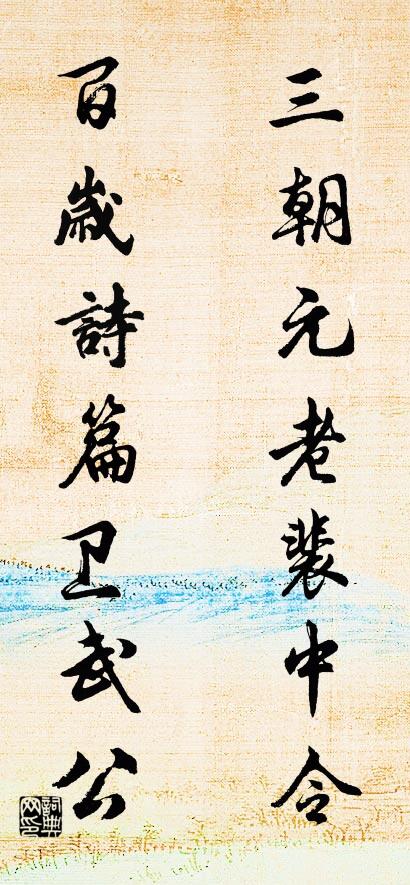 三朝元老裴中令
百歲詩篇卫武公
詞典网印